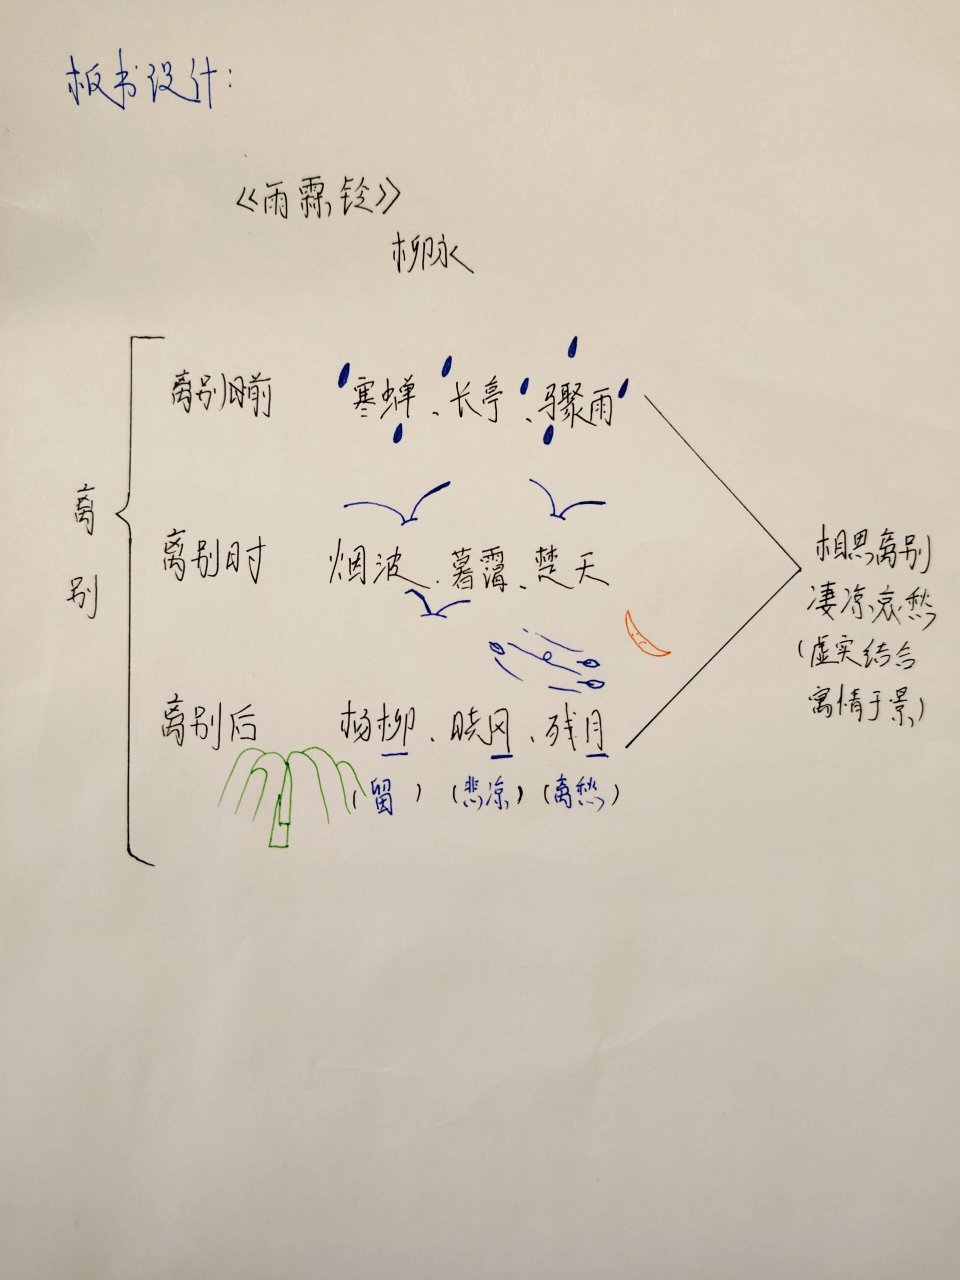 板书设计:
《雨霖铃》
柳永
离别
离别前 寒蝉、长亭、骤雨
离别时 烟波、暮霭、楚天
离别后 杨柳、晓风、残月
(留) (悲凉) (离愁)
相思离别
凄凉哀愁
(虚实结合
寓情于景)